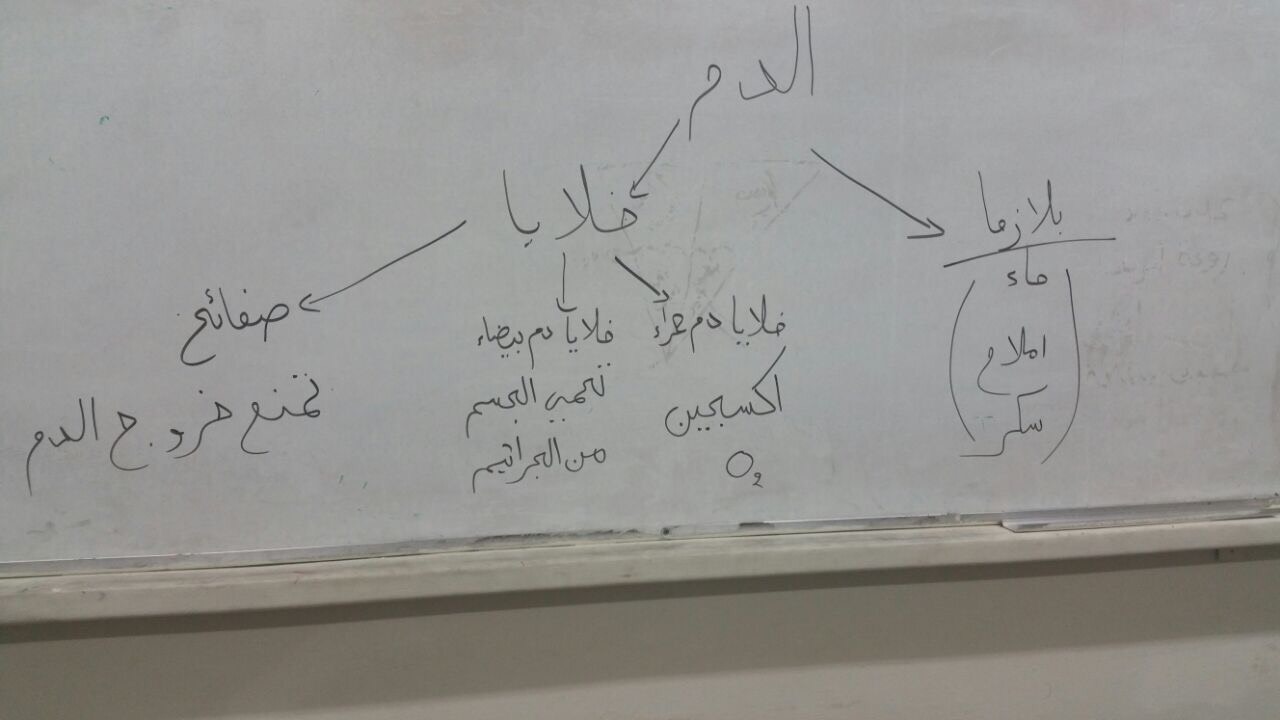 الدم
بلازما
ماء
املاح
سكر
خلايا
خلايا دم حمراء
اكسجين
O₂
خلايا دم بيضاء
تحمي الجسم
من الجراثيم
صفائح
تمنع خروج الدم